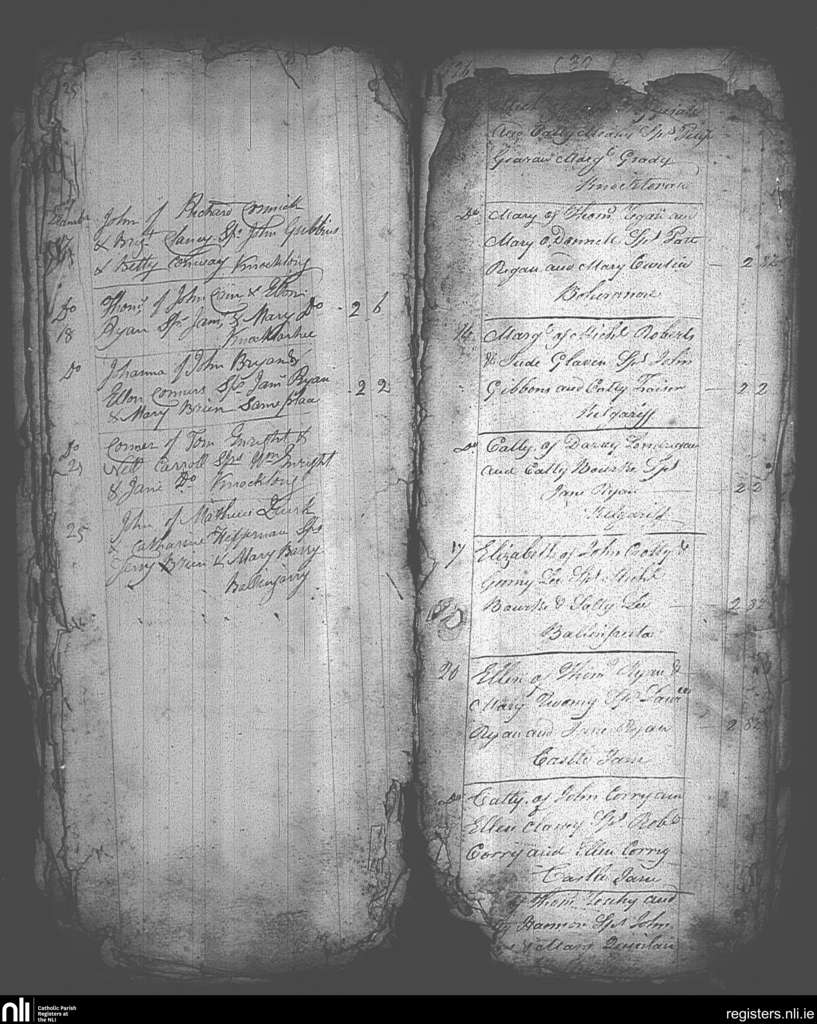 25
December
17 John of Richard Cormick
& Brigt Clancy Sps John Gubbins
& Betty Conway Knocklong
Do Thoms of John Crim & Ellen
18 Ryan Sps Jams & Mary Do - 2 6
Knocklarhee
Do Johanna of John Bryan &
Ellen Conners Sps Jams Ryan
& Mary Brien Same place - 2 2
Do Conner of Tom Inright &
21 Nell Carroll Sps Wm Inright
& Jane Do Knocklong
25 John of Mathew Quirk
& Catharine Heffernan Sps
Jerry Brien & Mary Barry
Ballingarry
and Catty Meaney Sps
and Margt Grady
Knocktoran
Do Mary of Thoms Egan and
Mary O Donnell Sps Patt
Regan and Mary Curtin - 2 8½
Bohernanoe
14 Margt of Michl Roberts
& Jude Glaven Sps John
Gibbons and Catty - 2 2
Kilgariff
Do Catty of Darky Londrigan
and Catty Bourke Sps
Jane Ryan - 2 2
Kilgariff
17 Elizabeth of John Crotty &
Genny Lee Sps Michl
Bourke & Sally Lee - 2 8½
Balinscula
20 Ellen of Thoms Ryan &
Margt Twomy Sps Lawrce
Ryan and Jane Ryan 2 8½
Castle Farm
Do Catty of John Corry and
Ellen Clancy Sps Robt
Corry and Ellen Corry
Castle Farm
of Thoms Leahy and
Hannon Sps John
& Mary Quinlan
nli Catholic Parish
Registers at
the NLI
registers.nli.ie